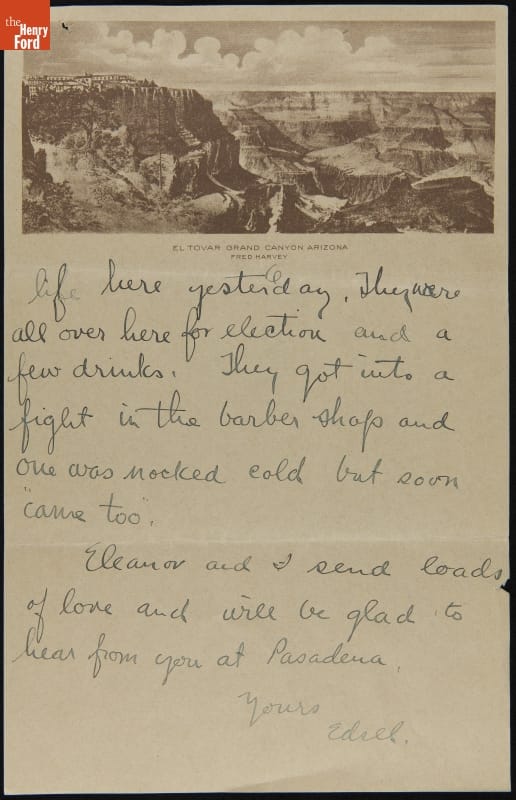 the
Henry
Ford
EL TOVAR GRAND CANYON ARIZONA
FRED HARVEY
life here yesterday. They were
all over here for election and a
few drinks. They got into a
fight in the barber shop and
one was nocked cold but soon
"came too".
Eleanor and I send loads
of love and will be glad to
hear from you at Pasadena.
Yours
Edsel.